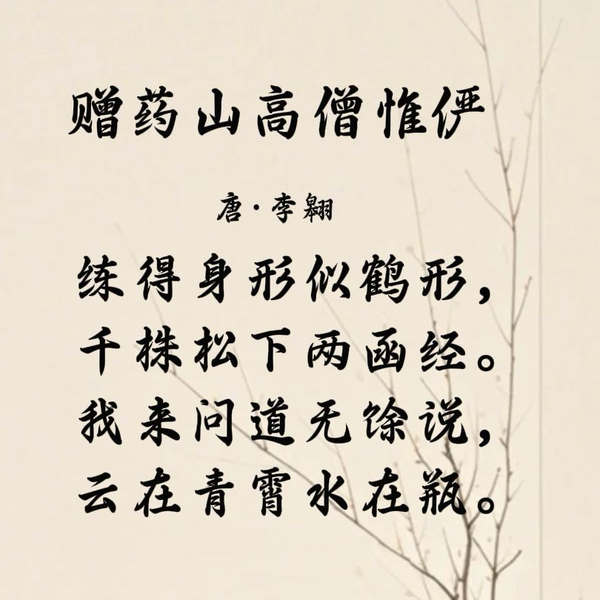 赠药山高僧惟俨
唐·李翱
练得身形似鹤形，
千株松下两函经。
我来问道无馀说，
云在青霄水在瓶。